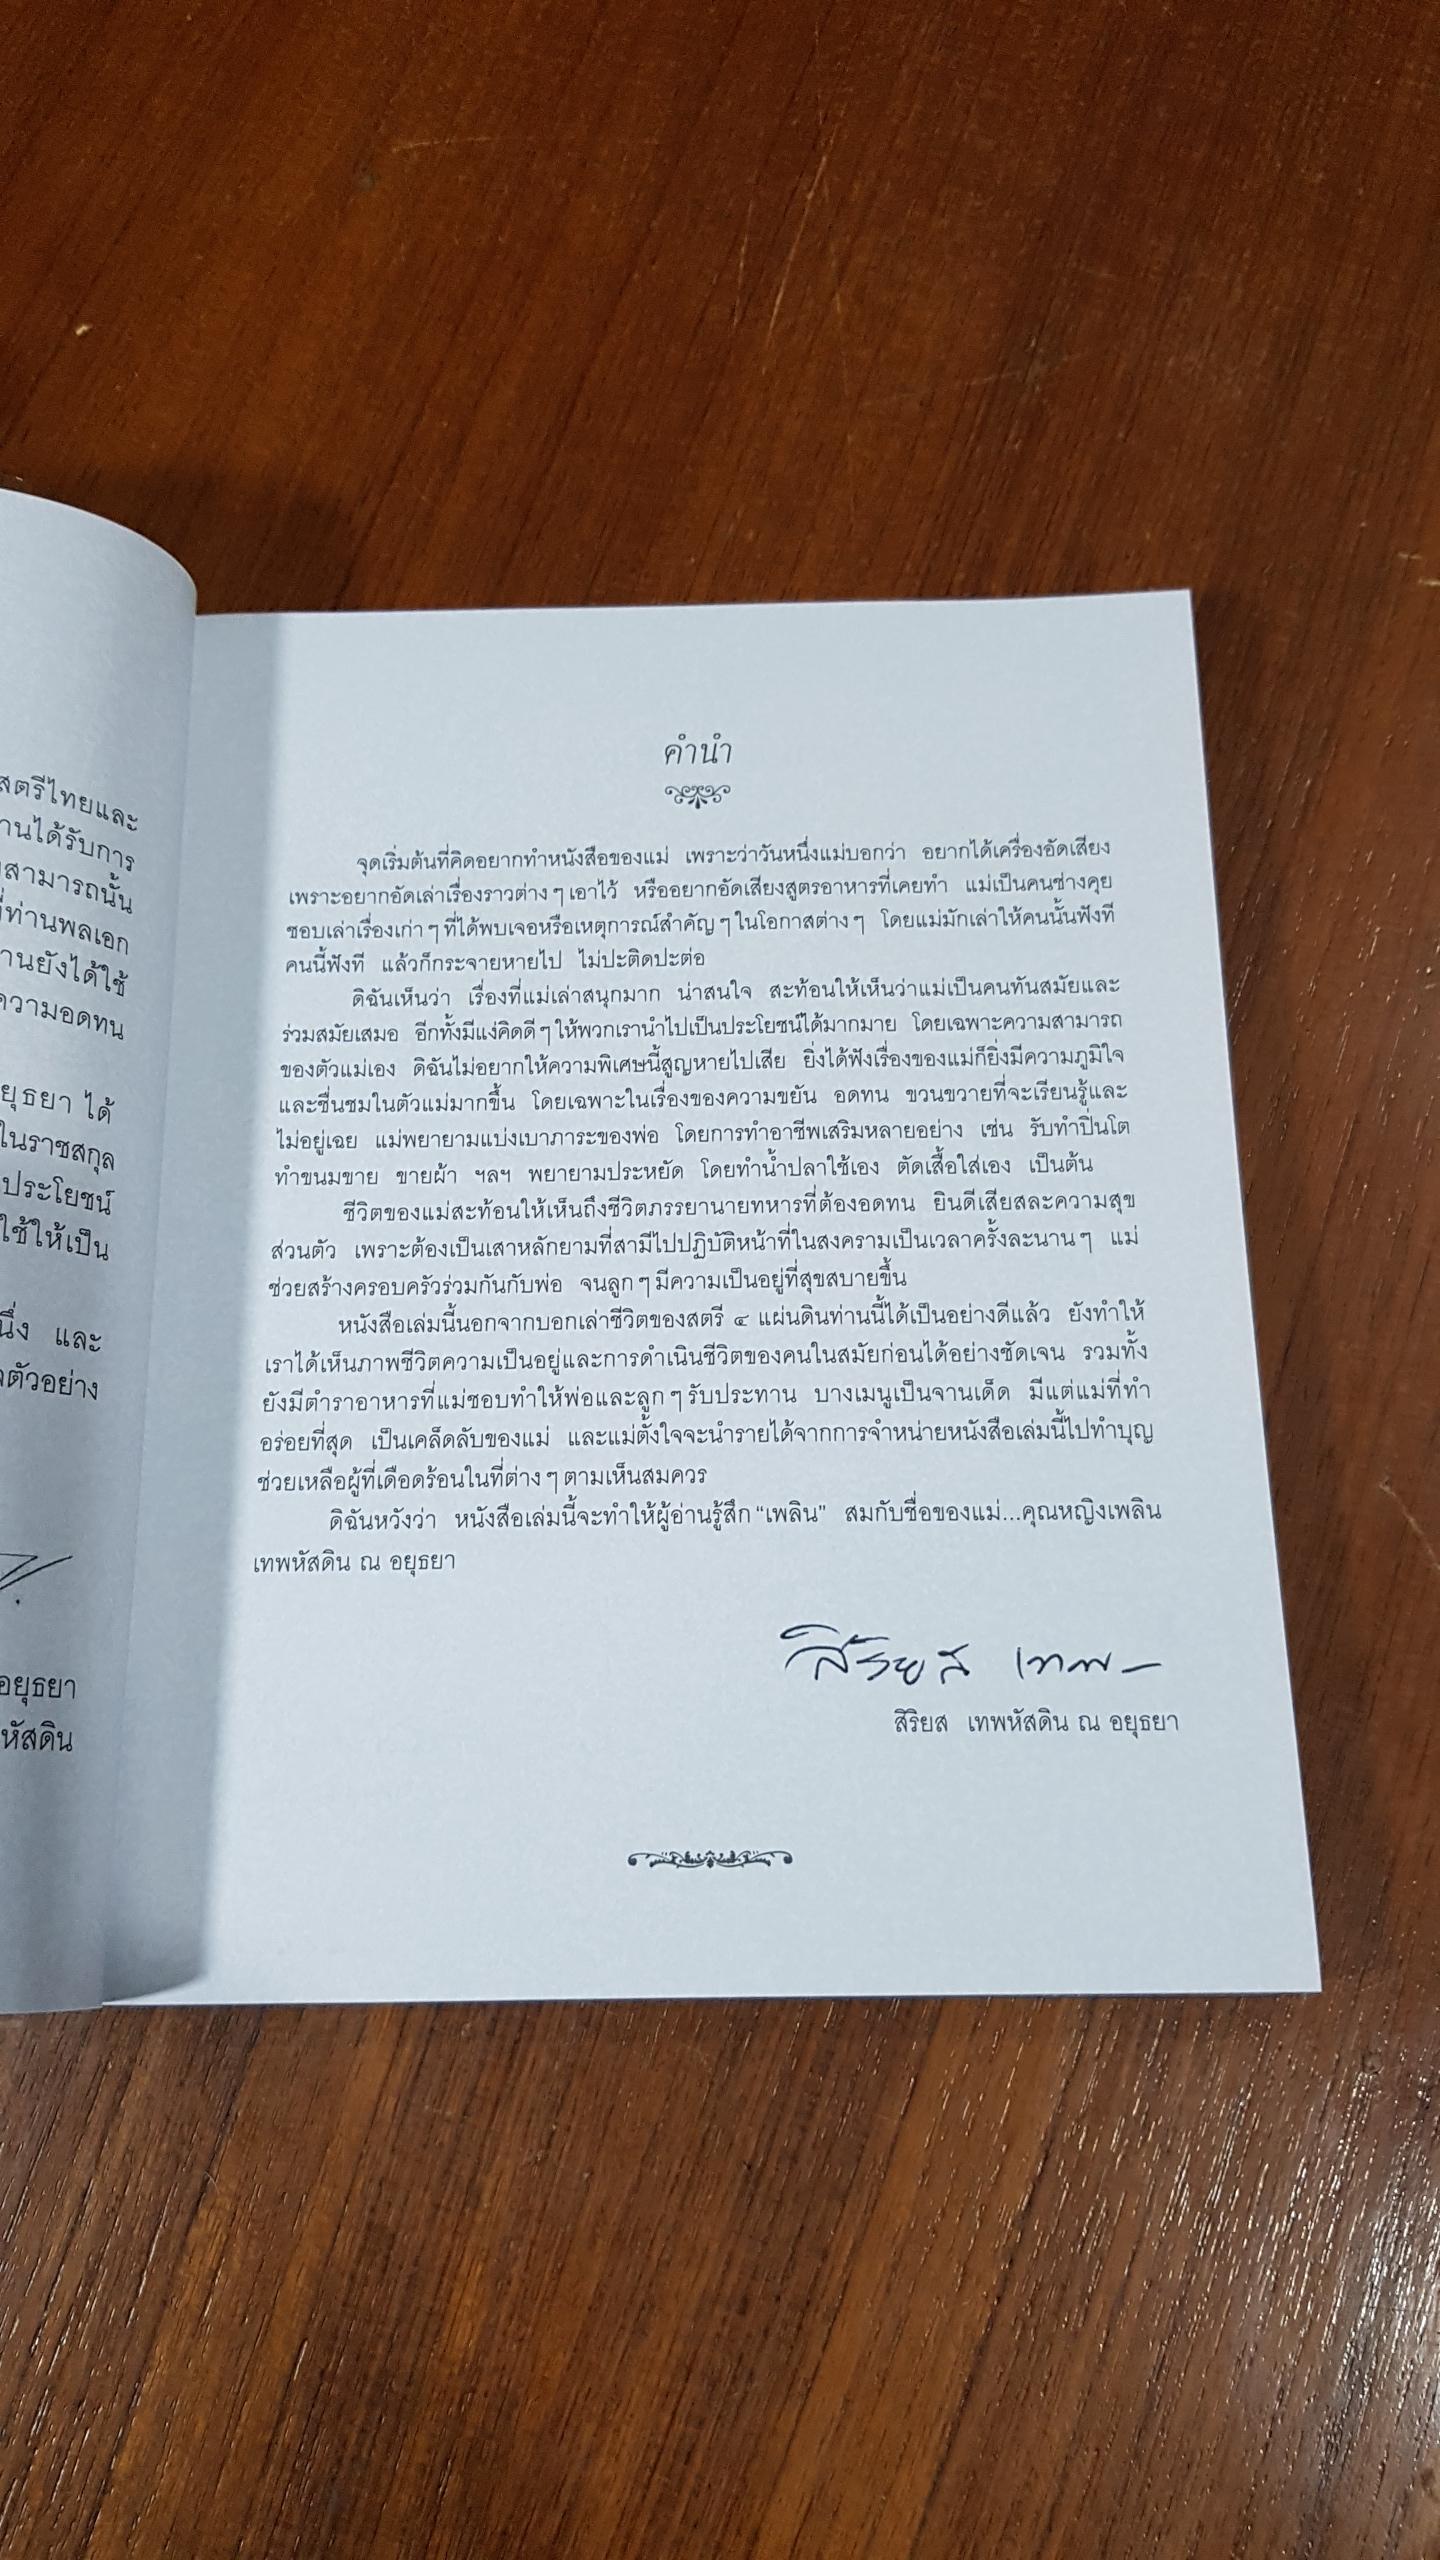 สตรีไทยและ
านได้รับการ
สามารถนั้น
ที่ท่านพลเอก
านยังได้ใช้
ความอดทน
ยุธยา ได้
ในราชสกุล
ประโยชน์
ใช้ให้เป็น
นึ่ง และ
ตัวอย่าง
อยุธยา
หัสดิน
คำนำ
จุดเริ่มต้นที่คิดอยากทำหนังสือของแม่ เพราะว่าวันหนึ่งแม่บอกว่า อยากได้เครื่องอัดเสียง
เพราะอยากอัดเล่าเรื่องราวต่าง ๆ เอาไว้ หรืออยากอัดเสียงสูตรอาหารที่เคยทำ แม่เป็นคนช่างคุย
ชอบเล่าเรื่องเก่า ๆ ที่ได้พบเจอหรือเหตุการณ์สำคัญ ๆ ในโอกาสต่าง ๆ โดยแม่มักเล่าให้คนนั้นฟังที
คนนี้ฟังที แล้วก็กระจายหายไป ไม่ปะติดปะต่อ
ดิฉันเห็นว่า เรื่องที่แม่เล่าสนุกมาก น่าสนใจ สะท้อนให้เห็นว่าแม่เป็นคนทันสมัยและ
ร่วมสมัยเสมอ อีกทั้งมีแง่คิดดี ๆ ให้พวกเรานำไปเป็นประโยชน์ได้มากมาย โดยเฉพาะความสามารถ
ของตัวแม่เอง ดิฉันไม่อยากให้ความพิเศษนี้สูญหายไปเสีย ยิ่งได้ฟังเรื่องของแม่ก็ยิ่งมีความภูมิใจ
และชื่นชมในตัวแม่มากขึ้น โดยเฉพาะในเรื่องของความขยัน อดทน ขวนขวายที่จะเรียนรู้และ
ไม่อยู่เฉย แม่พยายามแบ่งเบาภาระของพ่อ โดยการทำอาชีพเสริมหลายอย่าง เช่น รับทำปิ่นโต
ทำขนมขาย ขายผ้า ฯลฯ พยายามประหยัด โดยทำน้ำปลาใช้เอง ตัดเสื้อใส่เอง เป็นต้น
ชีวิตของแม่สะท้อนให้เห็นถึงชีวิตภรรยานายทหารที่ต้องอดทน ยินดีเสียสละความสุข
ส่วนตัว เพราะต้องเป็นเสาหลักยามที่สามีไปปฏิบัติหน้าที่ในสงครามเป็นเวลาครั้งละนาน ๆ แม่
ช่วยสร้างครอบครัวร่วมกันกับพ่อ จนลูก ๆ มีความเป็นอยู่ที่สุขสบายขึ้น
หนังสือเล่มนี้นอกจากบอกเล่าชีวิตของสตรี ๔ แผ่นดินท่านนี้ได้เป็นอย่างดีแล้ว ยังทำให้
เราได้เห็นภาพชีวิตความเป็นอยู่และการดำเนินชีวิตของคนในสมัยก่อนได้อย่างชัดเจน รวมทั้ง
ยังมีตำราอาหารที่แม่ชอบทำให้พ่อและลูก ๆ รับประทาน บางเมนูเป็นจานเด็ด มีแต่แม่ที่ทำ
อร่อยที่สุด เป็นเคล็ดลับของแม่ และแม่ตั้งใจจะนำรายได้จากการจำหน่ายหนังสือเล่มนี้ไปทำบุญ
ช่วยเหลือผู้ที่เดือดร้อนในที่ต่าง ๆ ตามเห็นสมควร
ดิฉันหวังว่า หนังสือเล่มนี้จะทำให้ผู้อ่านรู้สึก “เพลิน” สมกับชื่อของแม่...คุณหญิงเพลิน
เทพหัสดิน ณ อยุธยา
สิริยส เทพ
สิริยส เทพหัสดิน ณ อยุธยา